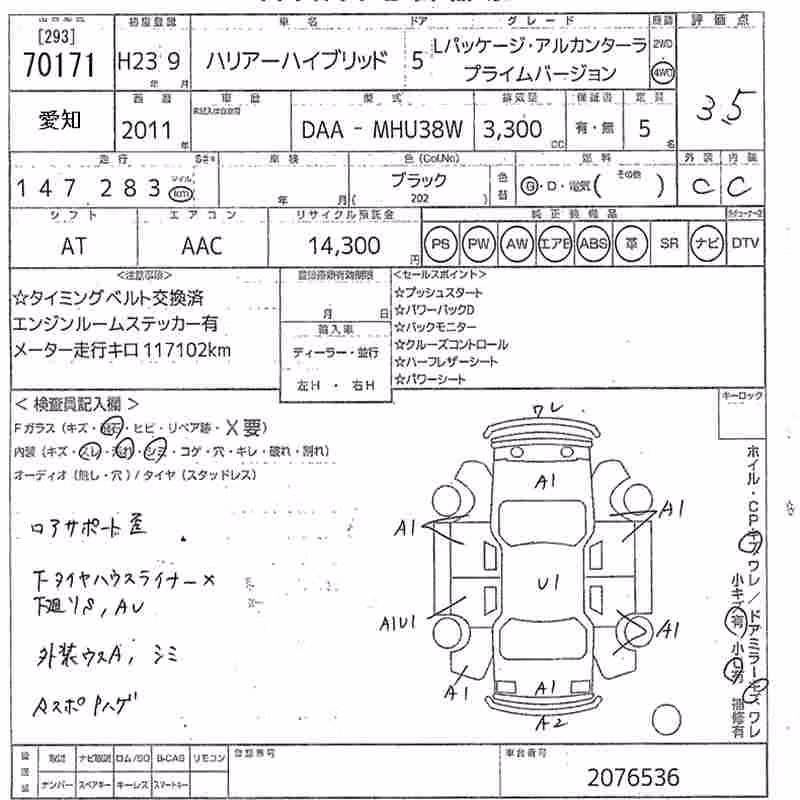 [293]
70171
初度登録
H23 9
年 月
車名
ハリアーハイブリッド
ドア
5
グレード
Lパッケージ・アルカンターラ
プライムバージョン
2WD
4WD
評価点
3.5
愛知
西暦
2011
年
車歴
型式
DAA - MHU38W
排気量
3,300
CC
保証書
有・無
定員
5
名
走行
147 283
マイル
km
車検
年 月
色(Col.No)
ブラック
( 202 )
色替
燃料
G・D・電気( その他 )
外装
C
内装
C
シフト
AT
エアコン
AAC
リサイクル預託金
14,300
円
純正装備品
PS PW AW エアB ABS 革 SR ナビ DTV
<注意事項>
☆タイミングベルト交換済
エンジンルームステッカー有
メーター走行キロ117102km
月 日
輸入車
ディーラー・並行
左H ・ 右H
<セールスポイント>
☆プッシュスタート
☆パワーバックD
☆バックモニター
☆クルーズコントロール
☆ハーフレザーシート
☆パワーシート
キーロック
<検査員記入欄>
Fガラス(キズ・飛石・ヒビ・リペア跡・X要)
内装(キズ・スレ・汚れ・シミ・コゲ・穴・キレ・破れ・割れ)
オーディオ(無し・穴)/タイヤ(スタッドレス)
ロアサポート歪
下タイヤハウスライナー×
下廻りS, AU
外装ウスA, シミ
Aスポ Pハゲ
ワレ
A1
A1
A1
U1
A1U1
A1
A1
A1
A2
ホイル・CPキズワレ/ドアミラーキズ、ワレ
小キズ有 小U有 補修有
取説 ナビ取説 ロム/SD B-CAS リモコン
ナンバー スペアキー キーレス スマートキー
登録番号
車台番号
2076536